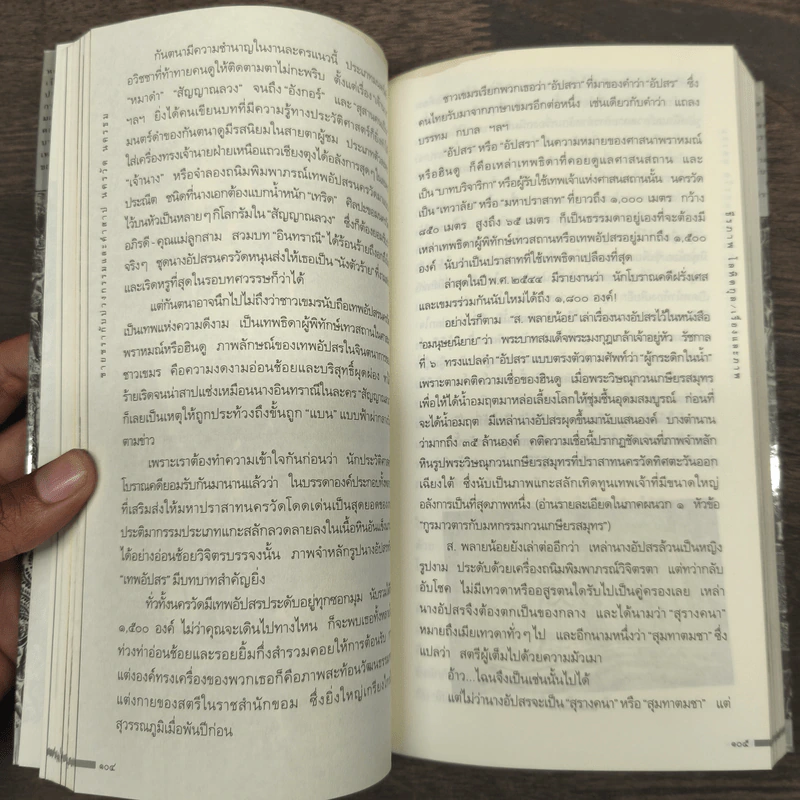 กันตนามีความชำนาญในงานละครแนวนี้ ประเภทมนต์
อวิชชาที่ท้าทายคนดูให้ติดตามตาไม่กะพริบ ตั้งแต่เรื่อง
"หมาดำ" "สัญญาณลวง" จนถึง "อังกอร์" และ
ฯลฯ ยิ่งได้คนเขียนบทที่มีความรู้ทางประวัติศาสตร์
มนตร์ดำของกันตนาดูมีรสนิยมในสายตาผู้ชม ประเภท
ใส่เครื่องทรงเจ้านายฝ่ายเหนือแถวเชียงตุงได้อลังการสุดๆ ใน
"เจ้านาง" หรือจำลองถนิมพิมพาภรณ์เทพอัปสรนครวัด
ประณีต ชนิดที่นางเอกต้องแบกน้ำหนัก "เทริด" ศิลปะขอม
ไว้บนหัวเป็นหลายๆ กิโลกรัมใน "สัญญาณลวง" ซึ่งก็ต้องยอม
อภิรดี-คุณแม่ลูกสาม สวมบท "อินทราณี" ได้ร้อนร้าย
จริงๆ ชุดนางอัปสรนครวัดหนุนส่งให้เธอเป็น "นังตัวร้าย"
และเริดหรูที่สุดในรอบทศวรรษก็ว่าได้
แต่กันตนาอาจนึกไปไม่ถึงว่าชาวเขมรนับถือเทพอัปสร
เป็นเทพแห่งความดีงาม เป็นเทพธิดาผู้พิทักษ์เทวสถานใน
พราหมณ์หรือฮินดู ภาพลักษณ์ของเทพอัปสรในจินตนาการ
ชาวเขมร คือความงดงามอ่อนช้อยและบริสุทธิ์ผุดผ่อง
ร้ายเริดจนน่าสาปแช่งเหมือนนางอินทราณีในละคร "สัญญาณ
ก็เลยเป็นเหตุให้ถูกประท้วงถึงขั้นถูก "แบน" แบบฟ้าผ่า
ตามข่าว
เพราะเราต้องทำความเข้าใจกันก่อนว่า นักประวัติศาสตร์
โบราณคดียอมรับกันมานานแล้วว่า ในบรรดาองค์ประกอบ
ที่เสริมส่งให้มหาปราสาทนครวัดโดดเด่นเป็นสุดยอดของ
ประติมากรรมประเภทแกะสลักลวดลายลงในเนื้อหินอัน
ได้อย่างอ่อนช้อยวิจิตรบรรจงนั้น ภาพจำหลักรูปนางอัปสร
"เทพอัปสร" มีบทบาทสำคัญยิ่ง
ทั่วทั้งนครวัดมีเทพอัปสรประดับอยู่ทุกซอกมุม นับรวม
๑,๕๐๐ องค์ ไม่ว่าคุณจะเดินไปทางไหน ก็จะพบเธอ
ท่วงท่าอ่อนช้อยและรอยยิ้มกึ่งสำรวมคอยให้การต้อนรับ
แต่งองค์ทรงเครื่องของพวกเธอก็คือภาพสะท้อนวัฒนธรรม
แต่งกายของสตรีในราชสำนักขอม ซึ่งยิ่งใหญ่เกรียงไกร
สุวรรณภูมิเมื่อพันปีก่อน
๑๐๔
ชาวเขมรเรียกพวกเธอว่า "อัปสรา" ที่มาของคำว่า "อัปสร" ซึ่ง
คนไทยรับมาจากภาษาเขมรอีกต่อหนึ่ง เช่นเดียวกับคำว่า แถลง
บรรทม กบาล ฯลฯ
"อัปสร" หรือ "อัปสรา" ในความหมายของศาสนาพราหมณ์
หรือฮินดู ก็คือเหล่าเทพธิดาที่คอยดูแลศาสนสถาน และ
เป็น "บาทบริจาริกา" หรือผู้รับใช้เทพเจ้าแห่งศาสนสถานนั้น นครวัด
เป็น "เทวาลัย" หรือ "มหาปราสาท" ที่ยาวถึง ๑,๐๐๐ เมตร กว้าง
๘๕๐ เมตร สูงถึง ๖๕ เมตร ก็เป็นธรรมดาอยู่เองที่จะต้องมี
เหล่าเทพธิดาผู้พิทักษ์เทวสถานหรือเทพอัปสรอยู่มากถึง ๑,๕๐๐
องค์ นับว่าเป็นปราสาทที่ใช้เทพธิดาเปลืองที่สุด
ล่าสุดในปี พ.ศ. ๒๕๔๔ มีรายงานว่า นักโบราณคดีฝรั่งเศส
และเขมรร่วมกันนับใหม่ได้ถึง ๑,๘๐๐ องค์!
อย่างไรก็ตาม "ส. พลายน้อย" เล่าเรื่องนางอัปสรไว้ในหนังสือ
"อมนุษยนิยาย" ว่า พระบาทสมเด็จพระมงกุฎเกล้าเจ้าอยู่หัว รัชกาล
ที่ ๖ ทรงแปลคำ "อัปสร" แบบตรงตัวตามศัพท์ว่า "ผู้กระดิกในน้ำ"
เพราะตามคติความเชื่อของฮินดู เมื่อพระวิษณุกวนเกษียรสมุทร
เพื่อให้ได้น้ำอมฤตมาหล่อเลี้ยงโลกให้ชุ่มชื้นอุดมสมบูรณ์ ก่อนที่
จะได้น้ำอมฤต มีเหล่านางอัปสรผุดขึ้นมานับแสนองค์ บางตำนาน
ว่ามากถึง ๓๕ ล้านองค์ คติความเชื่อนี้ปรากฏชัดเจนที่ภาพจำหลัก
หินรูปพระวิษณุกวนเกษียรสมุทรที่ปราสาทนครวัดทิศตะวันออก
เฉียงใต้ ซึ่งนับเป็นภาพแกะสลักเทิดทูนเทพเจ้าที่มีขนาดใหญ่
อลังการเป็นที่สุดภาพหนึ่ง (อ่านรายละเอียดในภาคผนวก ๑ หัวข้อ
"กูรมาวตารกับมหกรรมกวนเกษียรสมุทร")
ส. พลายน้อยยังเล่าต่ออีกว่า เหล่านางอัปสรล้วนเป็นหญิง
รูปงาม ประดับด้วยเครื่องถนิมพิมพาภรณ์วิจิตรตา แต่ทว่ากลับ
อับโชค ไม่มีเทวดาหรืออสูรตนใดรับไปเป็นคู่ครองเลย เหล่า
นางอัปสรจึงต้องตกเป็นของกลาง และได้นามว่า "สุรางคนา"
หมายถึงเมียเทวดาทั่วๆ ไป และอีกนามหนึ่งว่า "สุมทาตมชา" ซึ่ง
แปลว่า สตรีผู้เต็มไปด้วยความมัวเมา
อ้าว...ไฉนจึงเป็นเช่นนั้นไปได้
แต่ไม่ว่านางอัปสรจะเป็น "สุรางคนา" หรือ "สุมทาตมชา" แต่
๑๐๕